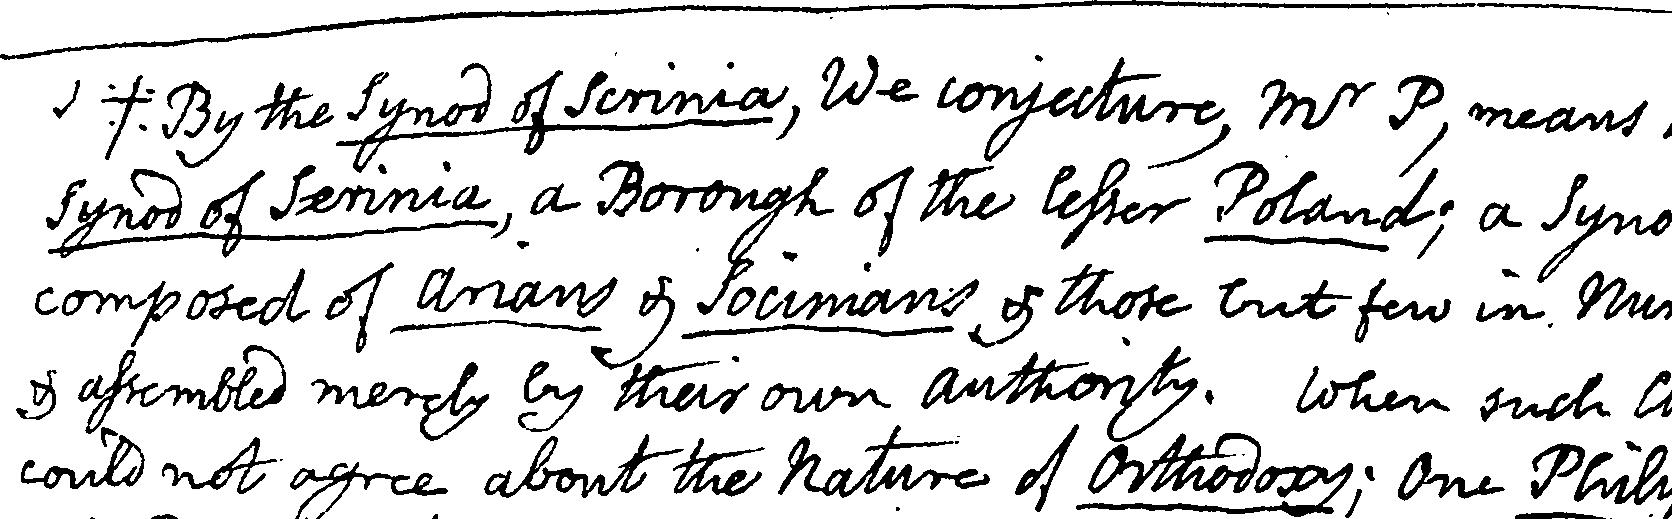 By the Synod of Scrinia, We conjecture, Mr P, means
Synod of Serinia, a Borough of the lesser Poland; a Syno
composed of Arians & Socinians & those but few in Num
& assembled merely by their own Authority. When such
could not agree about the Nature of Orthodoxy; One Phili